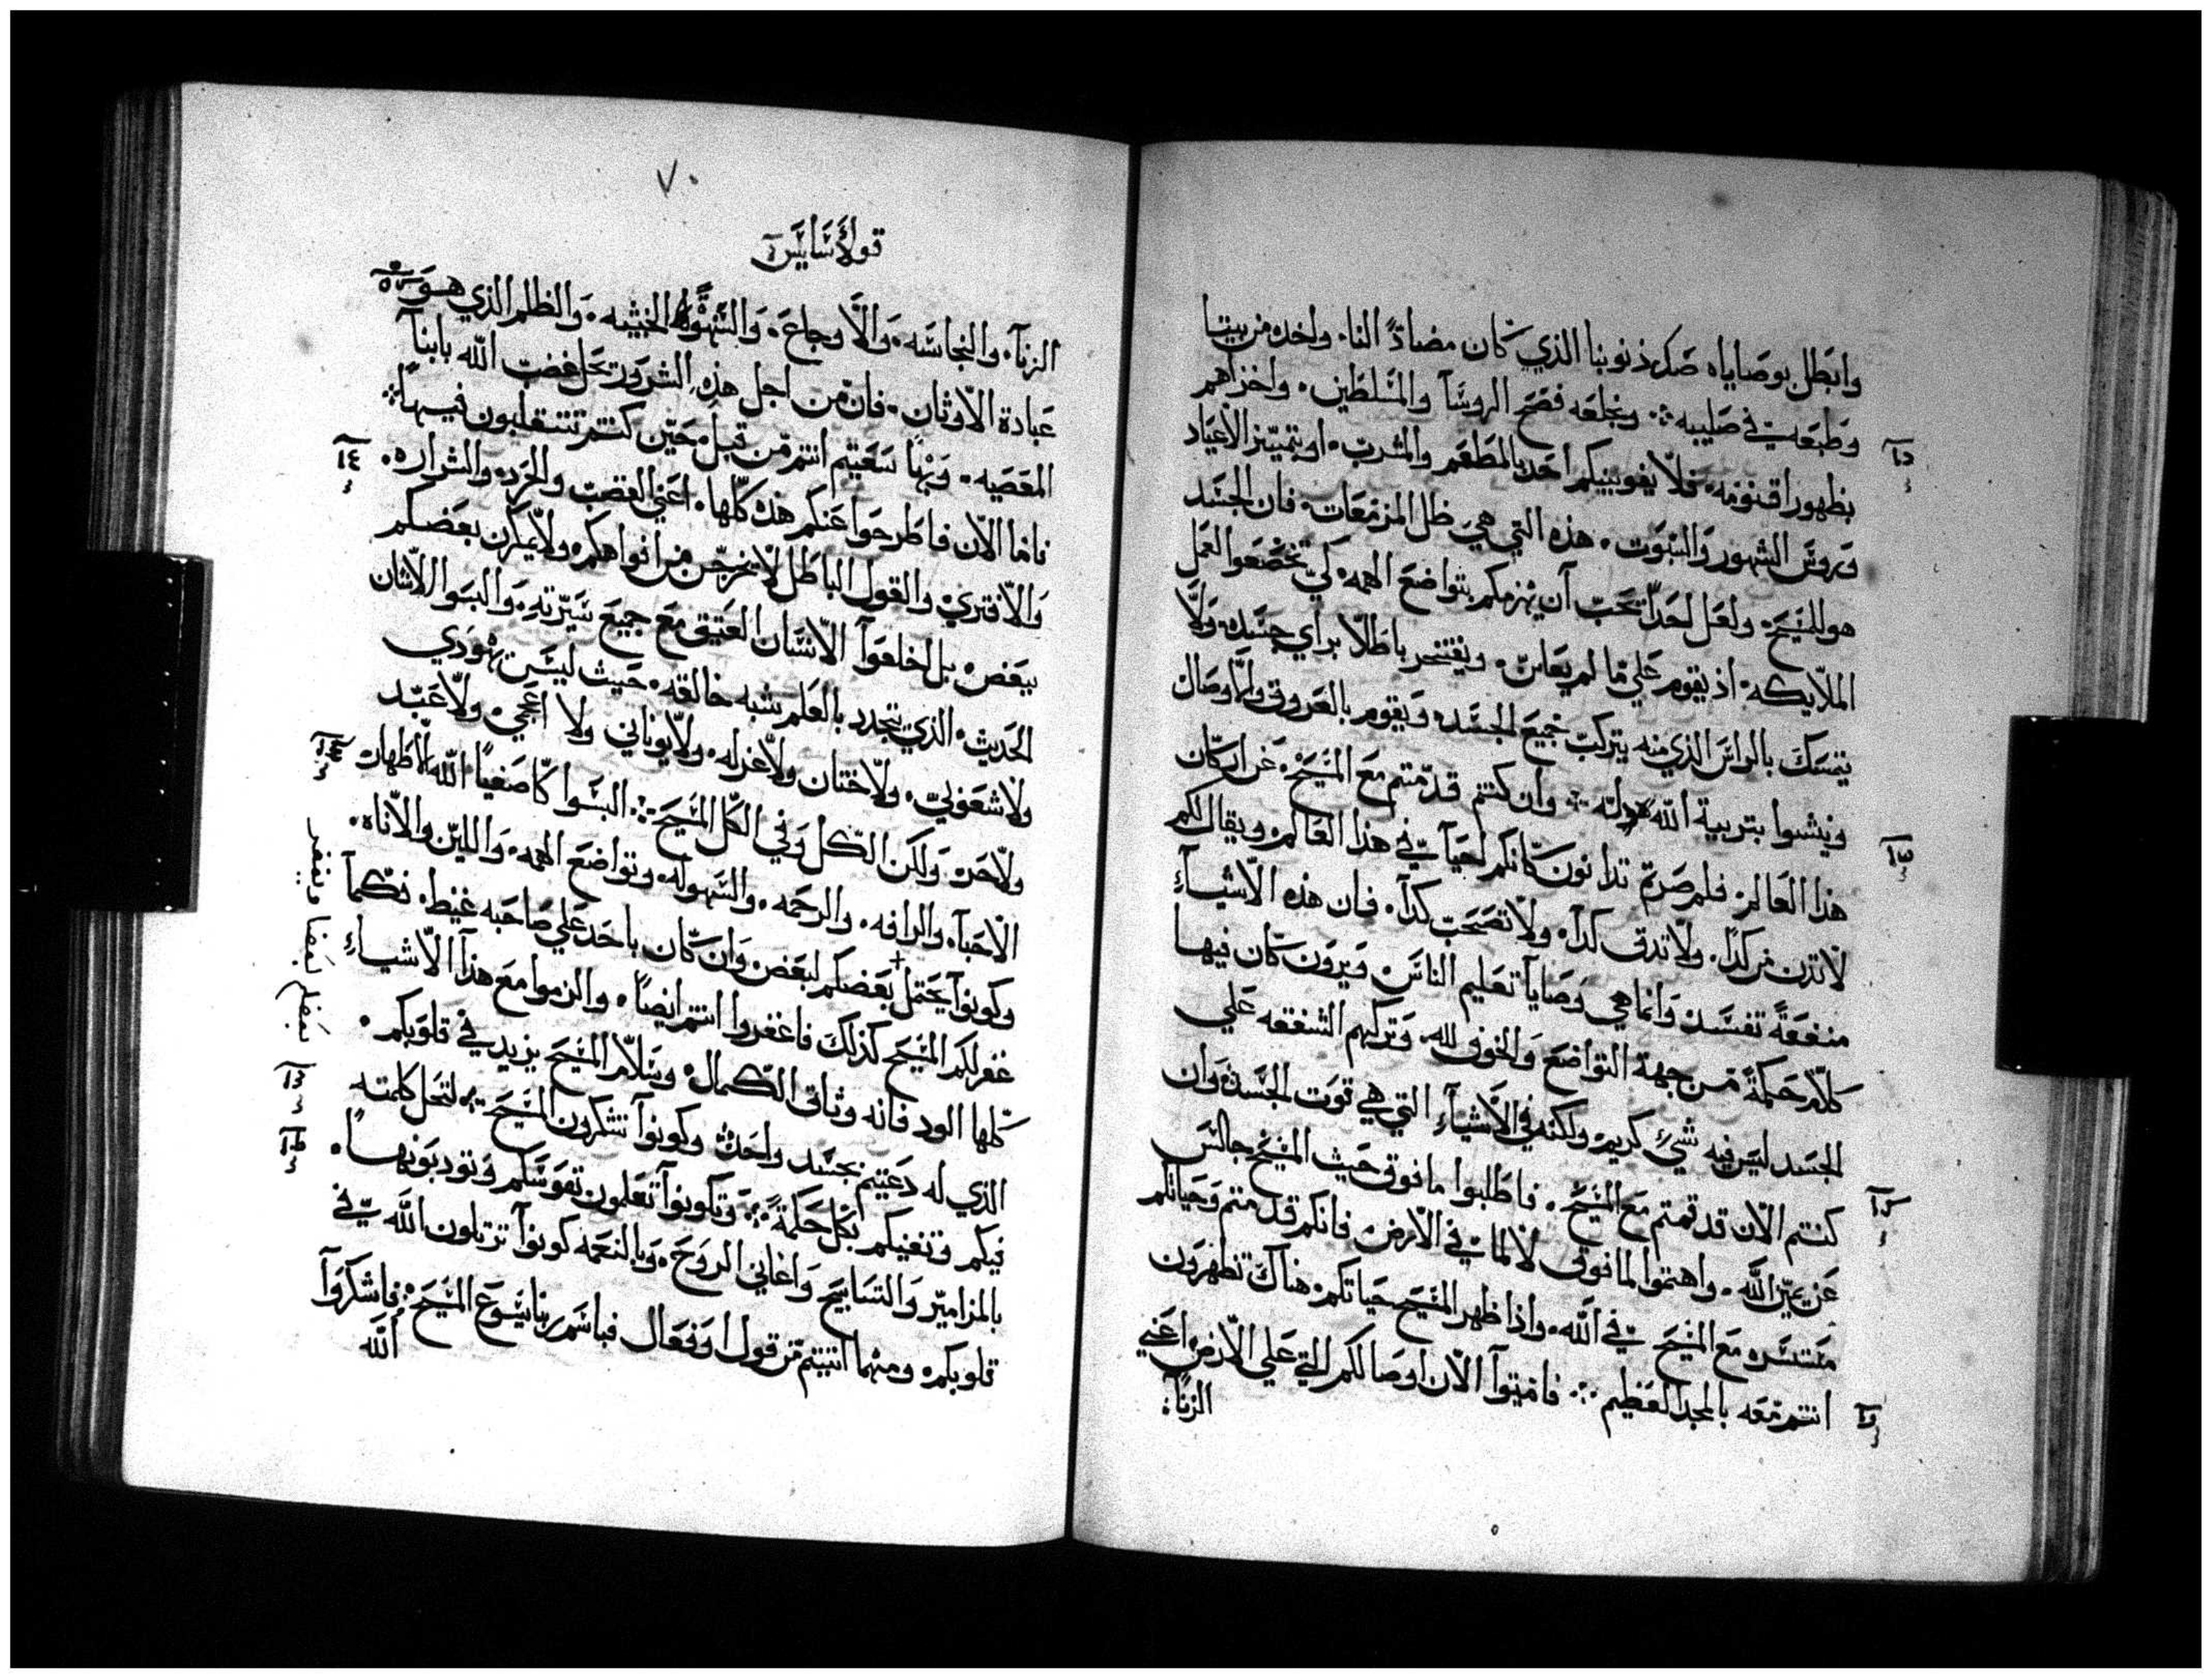 وابطل بوصاياه صك ذنوبنا الذي كان مضاددًا لنا. واخده من بيننا
وطبعه في صليبه ܀ وبخلعه فضح الروسآ والمسلطين. واخزاهم
بظهور اقنومه. فلا يغوينكم احد بالمطعم والمشرب. او بتمييز الاعياد
وروس الشهور والسبوت. هذه التي هي ظل المزمعات. فان الجسد
هو المسيح. ولعل احد تحب ان يهزمكم بتواضع الهمه. لكي تخضعوا لعمل
الملايكه. اذ يقوم علي ما لم يعاين. ويفتخر باطلا براي جسده. ولا
يتمسك بالراس الذي منه يتركب جميع الجسد. ويقوم بالعروق والاوصال
وينشوا بتربية الله له ܀ وان كنتم قد متم مع المسيح. عن اركان
هذا العالم. فلم صرتم تدانون كانكم احيآ في هذا العالم. ويقال لكم
لا تدن من كدا. ولا تدق كدا. ولا تصحب كدا. فان هذه الاشيآء
منفعةً تفسد. وانما هي وصايا تعليم الناس. ويرون كان فيها
كلام حكمةً من جهة التواضع والخوف لله. وتركهم الشفقه علي
الجسد ليس فيه شيء كريم. ولكنه في الاشيآء التي هي قوت الجسد. وان
كنتم الان قد قمتم مع المسيح. فاطلبوا ما فوق حيث المسيح جالس
عن يمين الله. واهتموا لما فوق لا لما في الارض. فانكم قد متم وحياتكم
مستتره مع المسيح في الله. واذا ظهر المسيح حياتكم. هناك تظهرون
انتم معه بالمجد العظيم ܀ فاميتوا الان اوصالكم التي علي الارض. اعني
الزنآ.
٧٠
قولاسايس
الزنآ. والنجاسه. والاوجاع. والشهوة الخبيثه. والظلم الذي هو
عبادة الاوثان. فان من اجل هذه الشرور تحل غضب الله بابنآ
المعصيه. وبها سعيتم انتم من قبل. حين كنتم تتقلبون فيها ܀
فاما الان فاطرحوا عنكم هذه كلها. اعني الغضب والحرد. والشراره.
والافتري. والقول الباطل لا يخرجن من افواهكم. ولا يمكرن بعضكم
ببعض. بل اخلعوا الانسان العتيق مع جميع سيرته. والبسوا الانسان
الحديث. الذي يتجدد بالعلم بشبه خالقه. حيث ليس يهودي
ولا شعوبي. ولا ختان ولا غرله. ولا يوناني ولا اعجمي. ولا عبد
ولا حر. ولكن الكل وفي الكل المسيح ܀ البسوا كاصفيآ الله الاطهار
الاحبآء. والرافه. والرحمه. والسهوله. وتواضع الهمه. واللين والاناه.
وكونوا يحتمل بعضكم لبعض. وان كان باحد علي صاحبه غيظ. فكما
غفر لكم المسيح كذلك فاغفروا انتم ايضًا. والزموا مع هذا الاشيآء
كلها الود فانه وثاق الكمال. وسلام المسيح يزيد في قلوبكم.
الذي له دعيتم بجسد واحد. وكونوا تشكرون المسيح ܀ لتحل كلمته
فيكم وتغنيكم بكل حكمة ܀ وتكونوا تعلمون نفوسكم وتودبونها.
بالمزامير والتسابيح واغاني الروح. وبالنعمه كونوا ترتلون الله في
قلوبكم. ومهما اتيتم من قول او فعال فباسم ربنا يسوع المسيح. فاشكروا
الله
بعضكم بعضا ويغفر